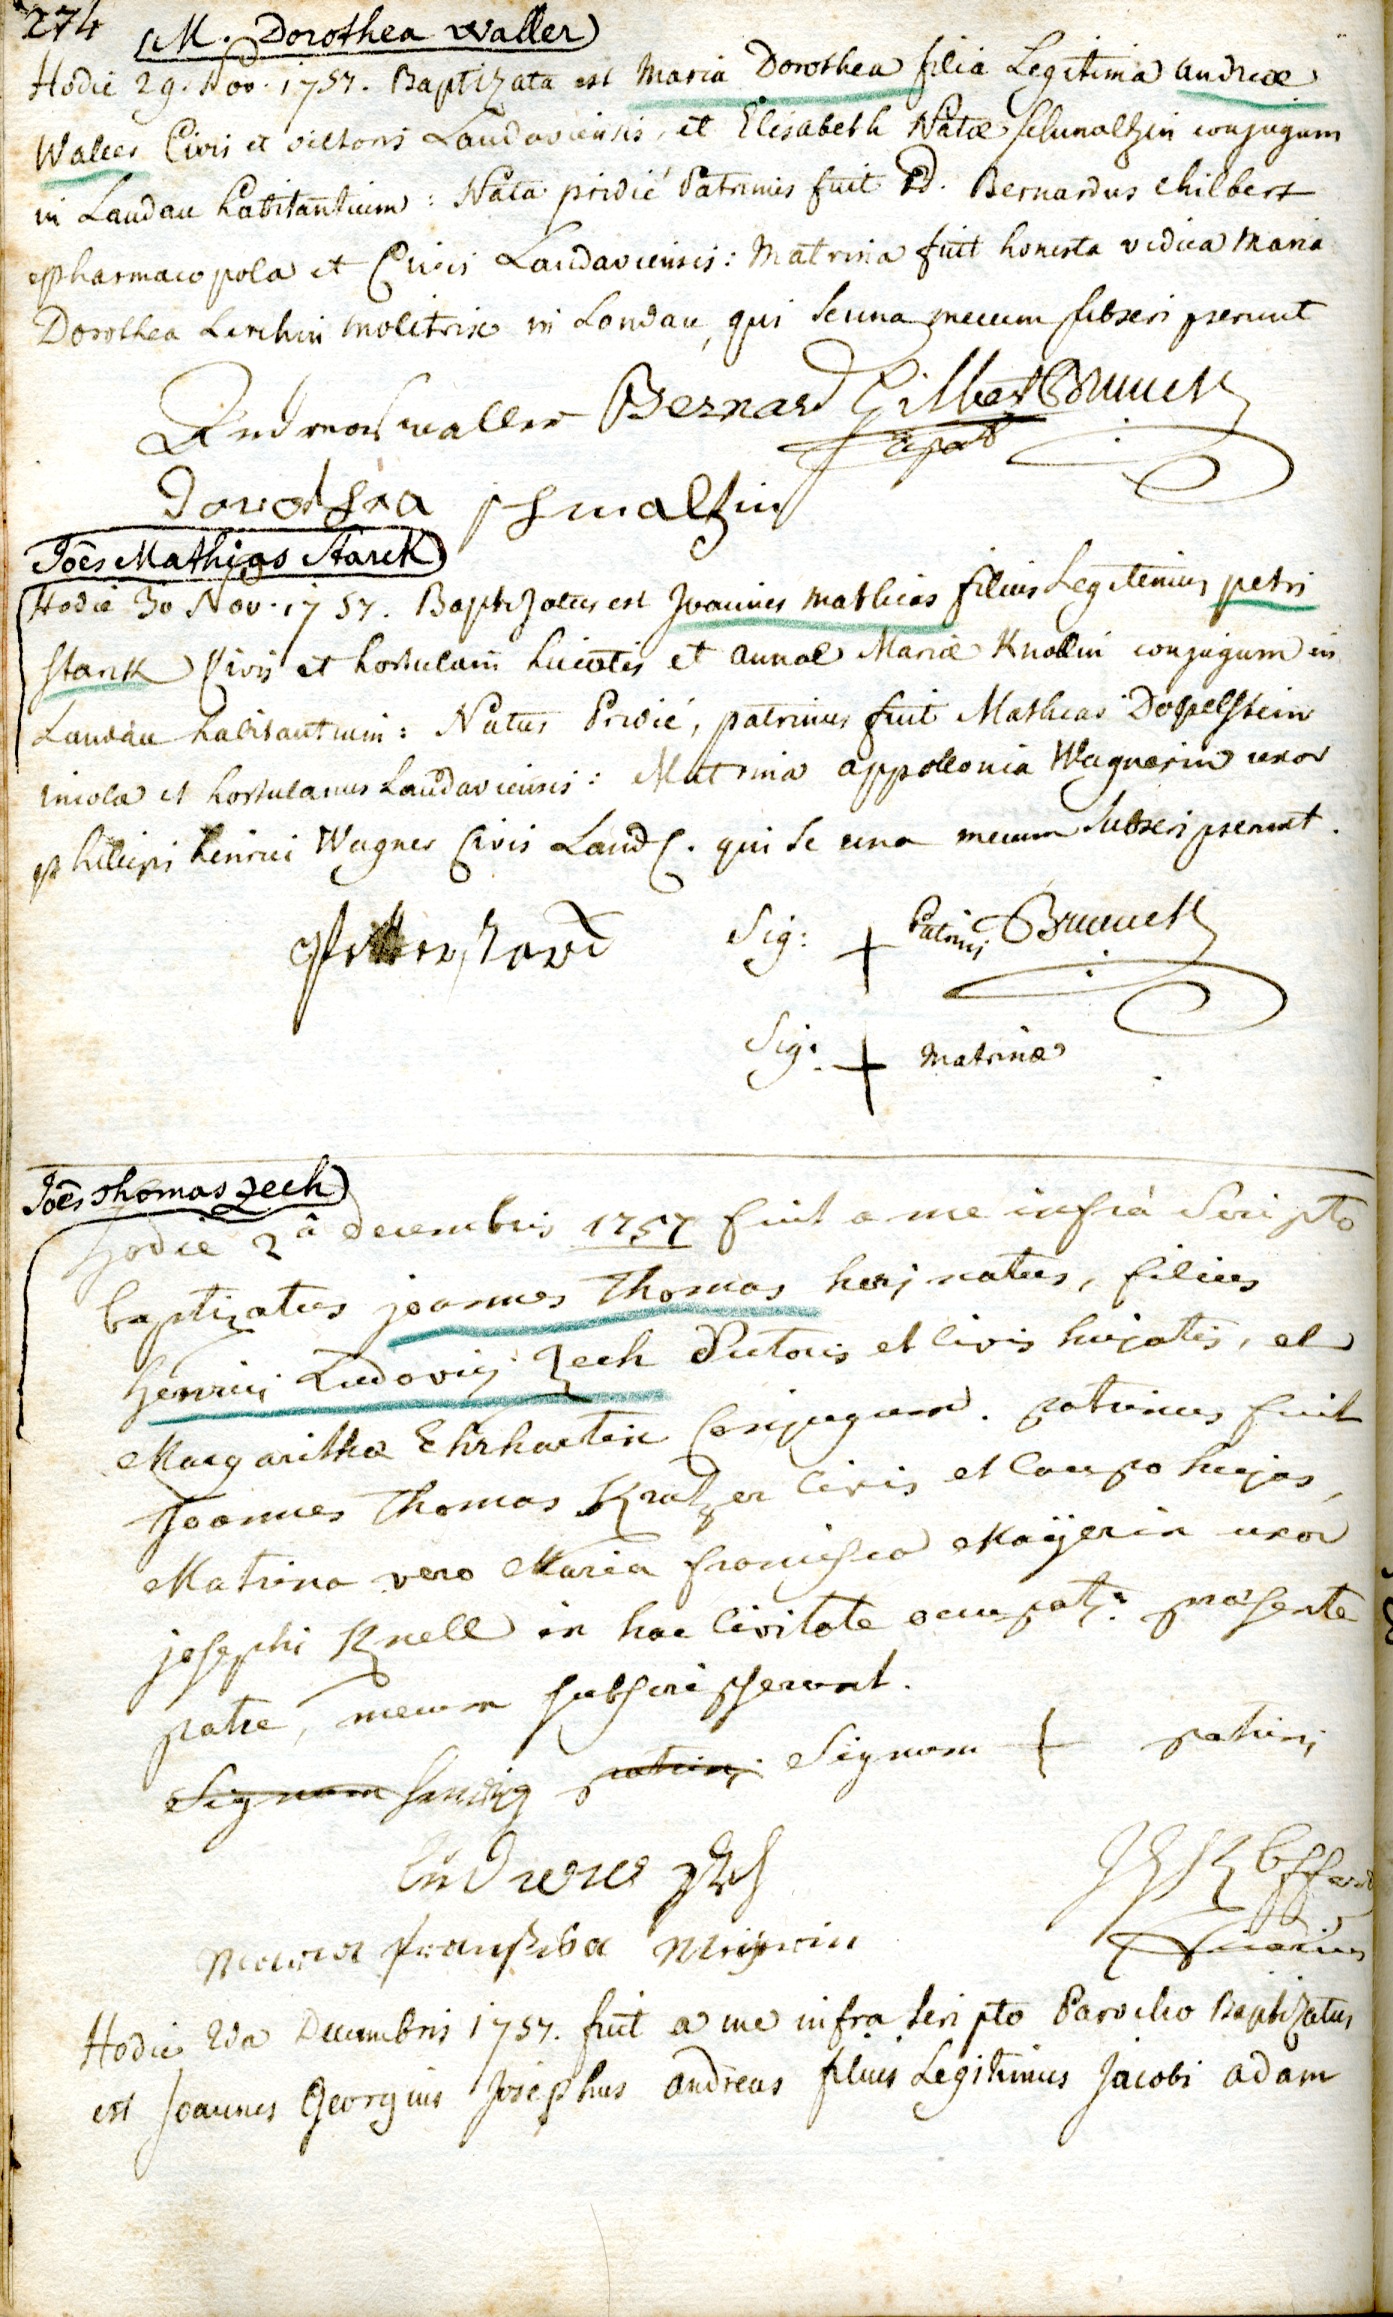 274
M. Dorothea Waller
Hodie 29. Nov. 1757. Baptizata est Maria Dorothea filia Legitima andreæ
Waller Civis et victoris Landaviensis, et Elisabeth Natæ schmaltzin conjugum
in Landau habitantium: Nata pridié Patrinus fuit D. Bernardus Chilbert
pharmacopola et Civis Landaviensis: Matrina fuit honesta vidua Maria
Dorothea Lerchin molitrix in Landau, qui se una mecum subscripserunt
Andreas waller Bernard Gilbert Brunck
apot
Dorothea schmaltzin
Joēs Mathias Starck
Hodie 30 Nov. 1757. Baptizatus est Joannes mathias filius Legitimus petri
starck Civis et hortulani hujatis et annæ Mariæ Knollin conjugum in
Landau habitantium: Natus Pridié, patrinus fuit Mathias Dopelstein
incola et hortulanus Landaviensis: Matrina appollonia Wagnerin uxor
philippi henrici Wagner Civis Land. qui se una mecum subscripserunt.
Sig: + Patrini Brunck
Sig: + Matrinæ
Joēs Thomas Zech
hodie 2â decembris 1757 fuit a me infrá scripto
baptizatus joannes Thomas heri natus, filius
henrici Ludovici Zech Pictoris et civis hujatis, et
Margarithæ Ehrhartin Conjugum. patrinus fuit
Joannes Thomas Kratzer civis et caupo hujas,
Matrina vero Maria francisca Mayerin uxor
josephi Knell in hac civitate præsente
patre, mecum subscripserunt.
Signum henrig patrini Signum + patrini
Hodie 2da Decembris 1757. fuit a me infra scripto Parocho Baptizatus
est Joannes Georgius Josephus andreas filius Legitimus Jacobi adam